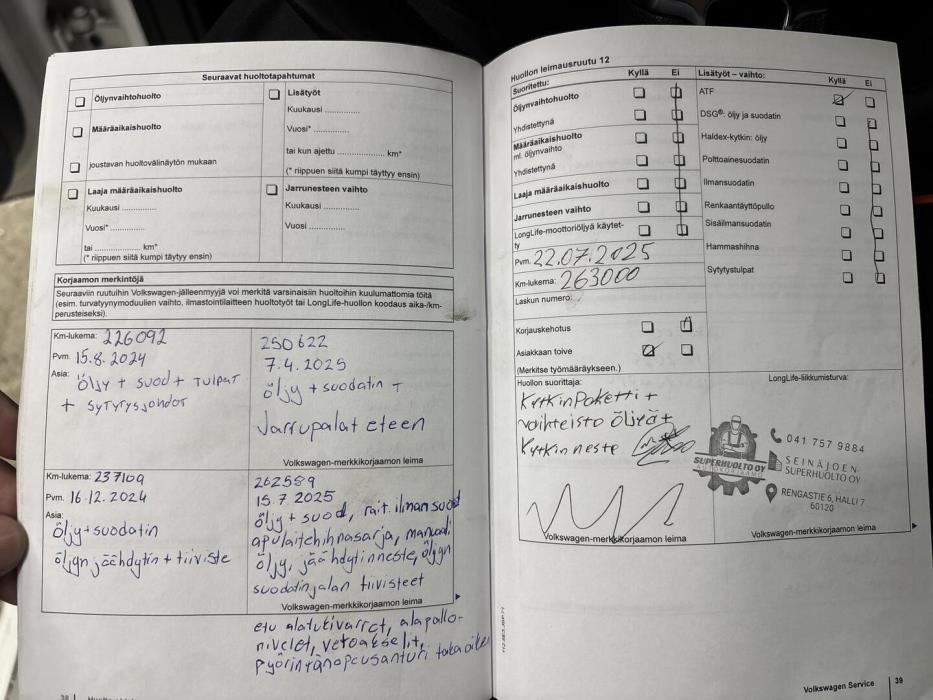 Seuraavat huoltotapahtumat
Öljynvaihtohuolto
Määräaikaishuolto
joustavan huoltovälinäytön mukaan
Lisätyöt
Kuukausi ..............
Vuosi* ...............
tai kun ajettu .................. km*
(* riippuen siitä kumpi täyttyy ensin)
Laaja määräaikaishuolto
Kuukausi .............
Vuosi* ..............
tai .................... km*
(* riippuen siitä kumpi täytyy ensin)
Jarrunesteen vaihto
Kuukausi ..............
Vuosi ..............
Korjaamon merkintöjä
Seuraaviin ruutuihin Volkswagen-jälleenmyyjä voi merkitä varsinaisiin huoltoihin kuulumattomia töitä
(esim. turvatyynymoduulien vaihto, ilmastointilaitteen huoltotyöt tai LongLife-huollon koodaus aika-/km-
perusteiseksi).
Km-lukema: 226092
Pvm. 15.8.2024
Asia: öljy + suod + tulpat
+ sytytysjohdot
250622
7.4.2025
öljy + suodatin +
Jarrupalat eteen
Volkswagen-merkkikorjaamon leima
Km-lukema: 237109
Pvm. 16.12.2024
Asia:
Öljy+suodatin
öljyn jäähdytin + tiiviste
262589
15.7.2025
öljy + suod, rait.ilman suod
apulaitehihnasarja, manuaali
öljy, jäähdytinneste, öljyn
suodatinjalan tiivisteet
Volkswagen-merkkikorjaamon leima
etu alatukivarret, alapallo-
nivelet, vetoakselit,
pyörintänopeusanturi taka oikea
38
Huollon leimausruutu 12
Suoritettu:
Kyllä
Ei
Öljynvaihtohuolto
Yhdistettynä
Määräaikaishuolto
ml. öljynvaihto
Yhdistettynä
Laaja määräaikaishuolto
Jarrunesteen vaihto
LongLife-moottoriöljyä käytet-
ty
Pvm. 22.07.2025
Km-lukema: 263000
Laskun numero:
Korjauskehotus
Asiakkaan toive
(Merkitse työmääräykseen.)
Lisätyöt – vaihto:
Kyllä
Ei
ATF
DSG®: öljy ja suodatin
Haldex-kytkin: öljy
Polttoainesuodatin
Ilmansuodatin
Renkaantäyttöpullo
Sisäilmansuodatin
Hammashihna
Sytytystulpat
Huollon suorittaja:
Kytkinpaketti +
vaihteisto öljyä +
Kytkinneste
Volkswagen-merkkikorjaamon leima
LongLife-liikkumisturva:
SUPERHUOLTO OY
AUTOKORJAAMO
041 757 9884
SEINÄJOEN
SUPERHUOLTO OY
RENGASTIE 6, HALLI 7
60120
Volkswagen-merkkikorjaamon leima
Volkswagen Service
39